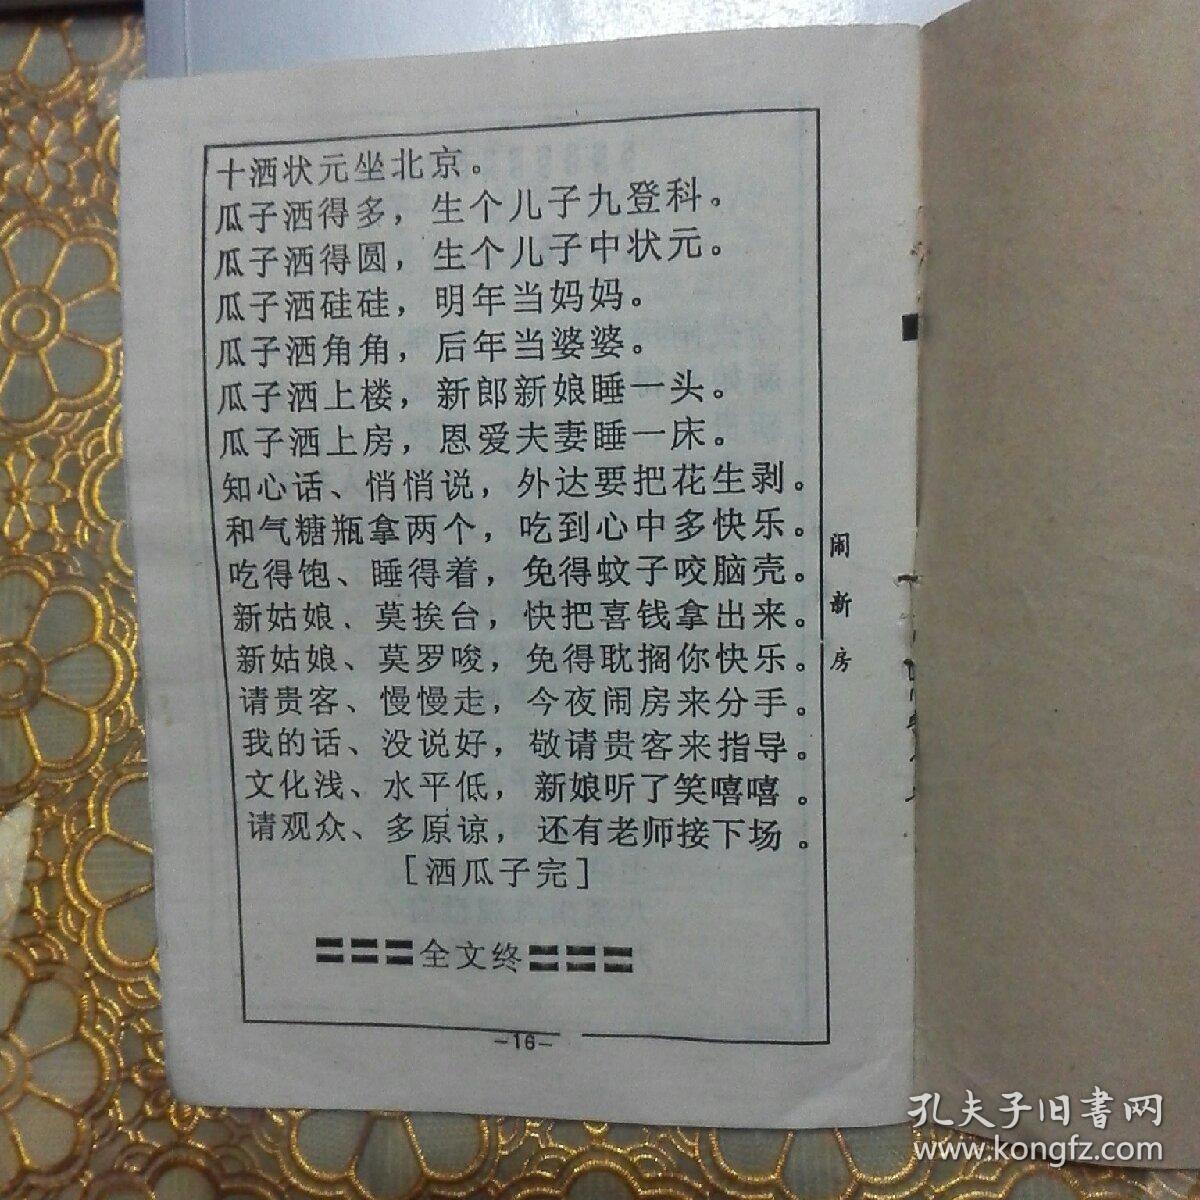 十洒状元坐北京。
瓜子洒得多，生个儿子九登科。
瓜子洒得圆，生个儿子中状元。
瓜子洒硅硅，明年当妈妈。
瓜子洒角角，后年当婆婆。
瓜子洒上楼，新郎新娘睡一头。
瓜子洒上房，恩爱夫妻睡一床。
知心话、悄悄说，外达要把花生剥。
和气糖瓶拿两个，吃到心中多快乐。
吃得饱、睡得着，免得蚊子咬脑壳。
新姑娘、莫挨台，快把喜钱拿出来。
新姑娘、莫罗唆，免得耽搁你快乐。
请贵客、慢慢走，今夜闹房来分手。
我的话、没说好，敬请贵客来指导。
文化浅、水平低，新娘听了笑嘻嘻。
请观众、多原谅，还有老师接下场。
[洒瓜子完]
===全文终===
-16-
闹新房
孔夫子旧書网
www.kongfz.com